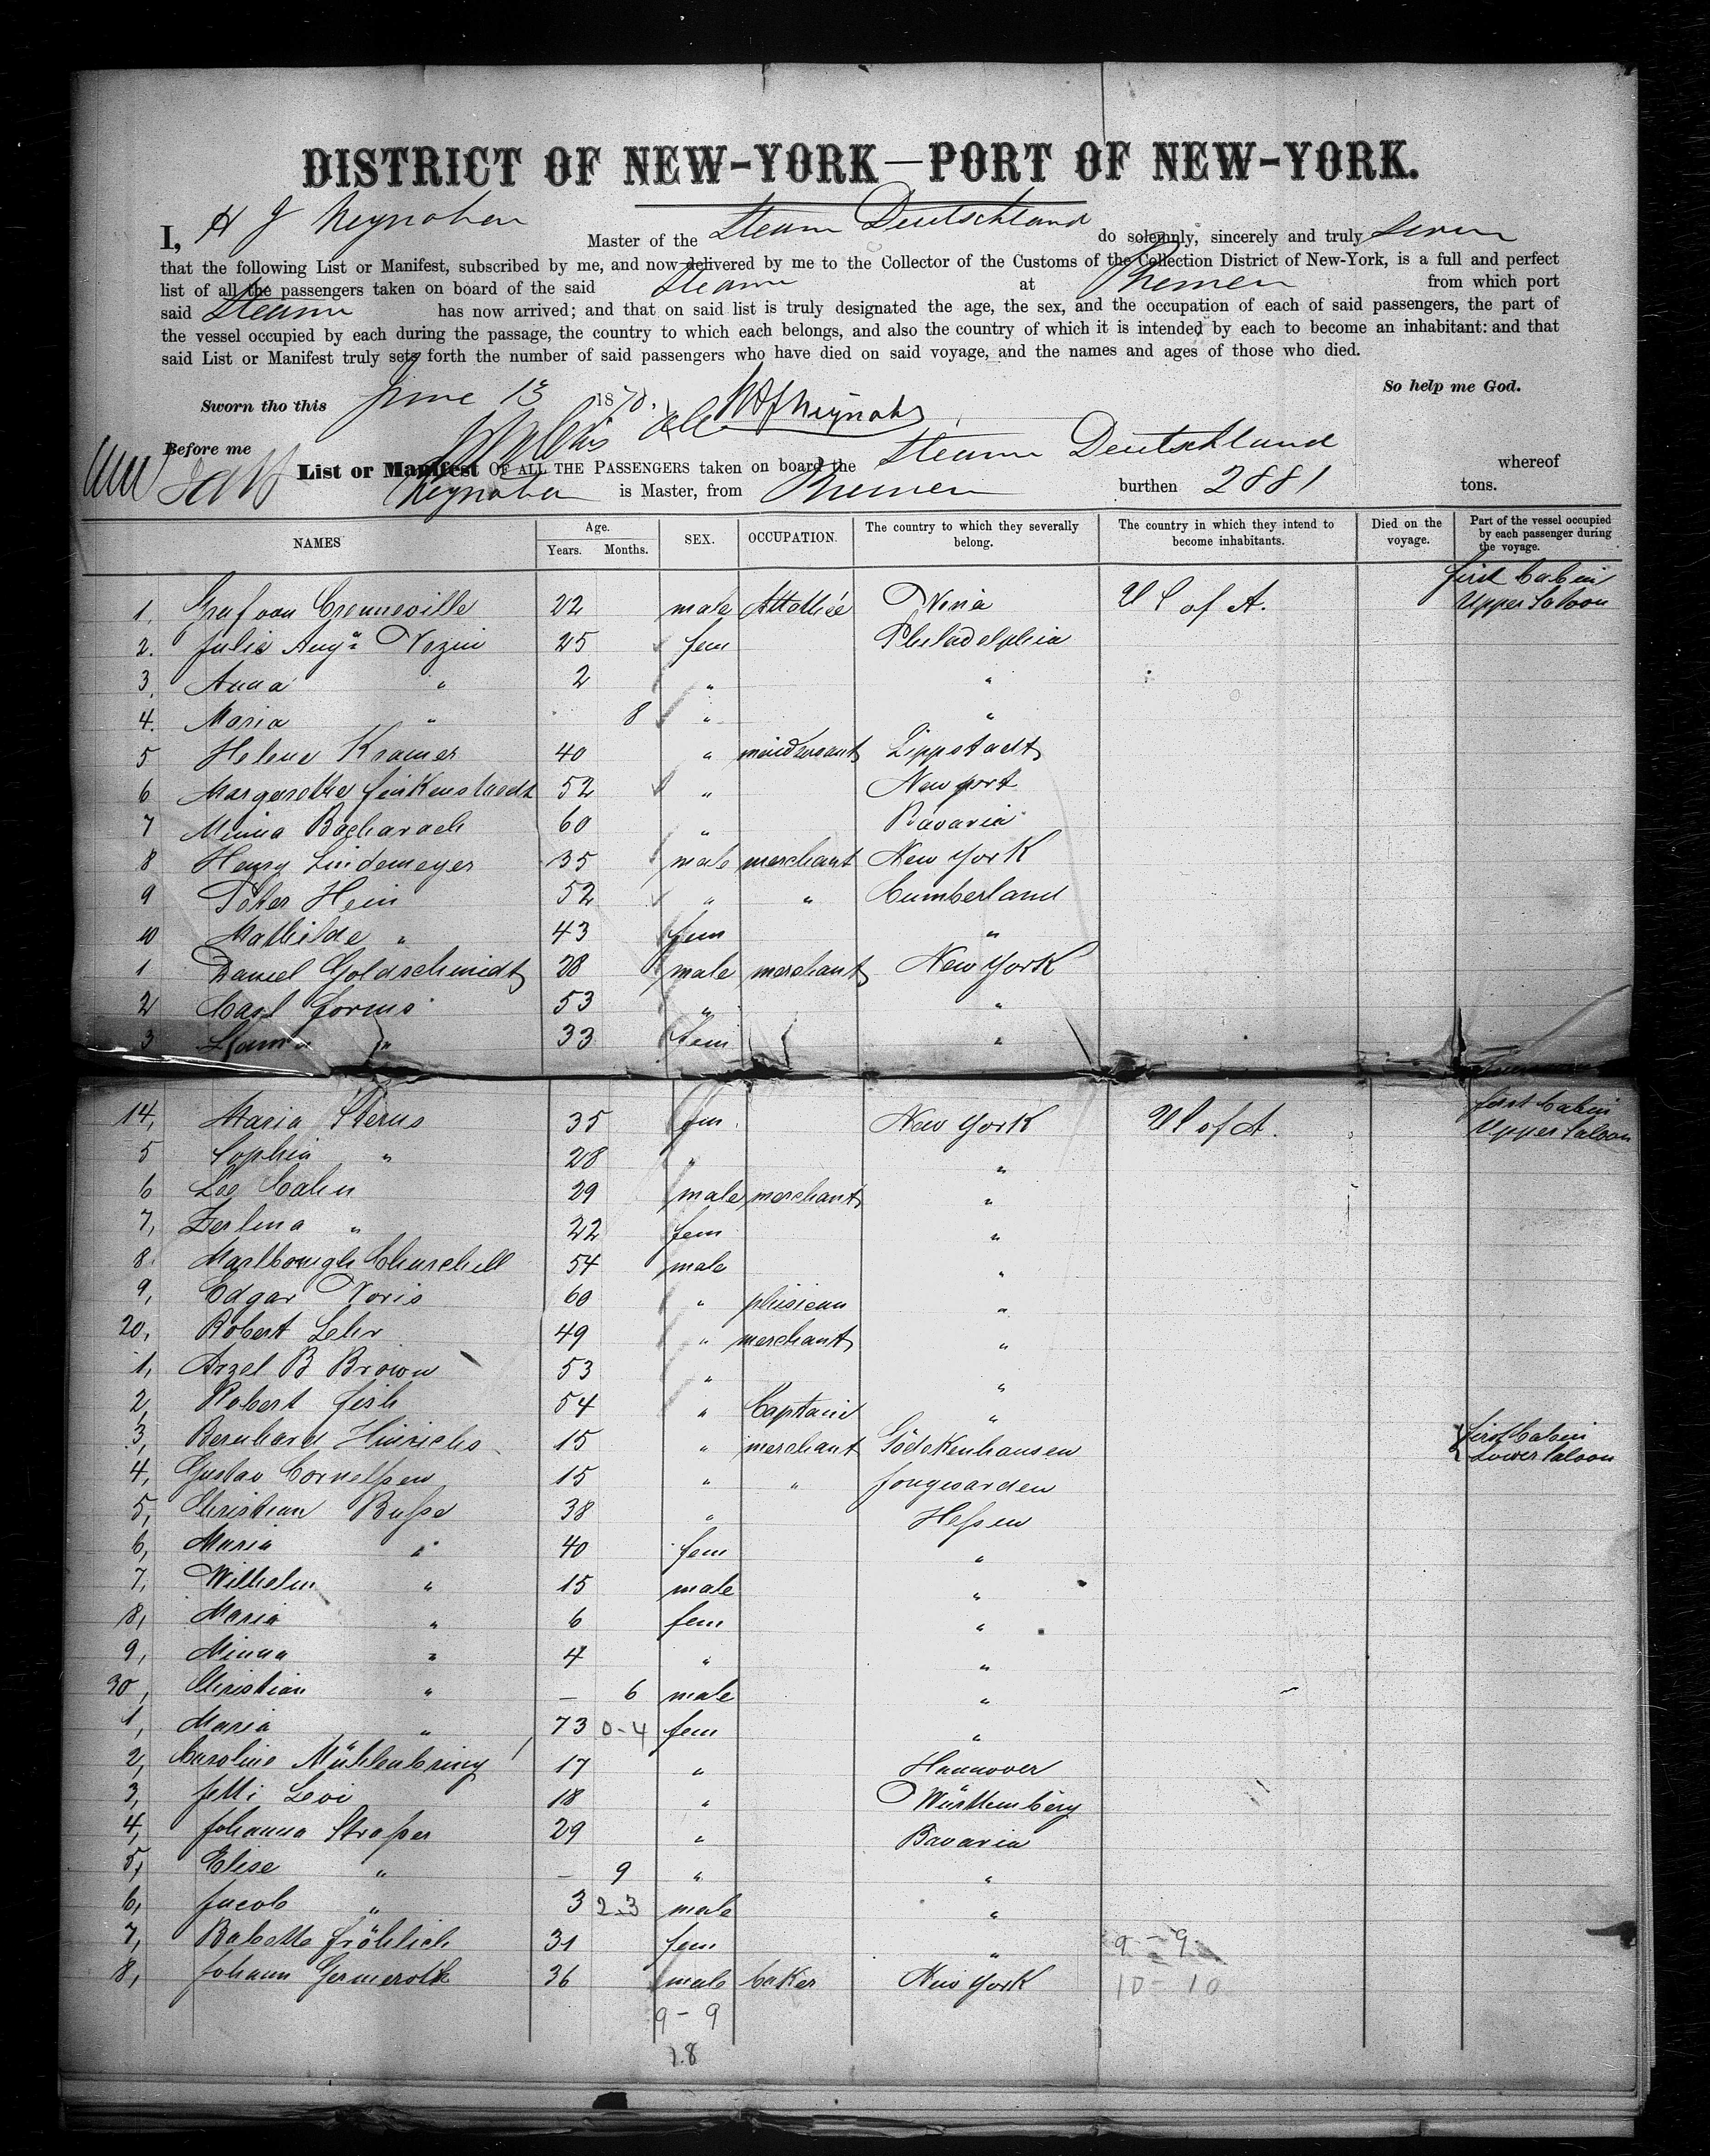 DISTRICT OF NEW-YORK—PORT OF NEW-YORK.
I, H J Neynaber Master of the Steam Deutschland do solemnly, sincerely and truly swear
that the following List or Manifest, subscribed by me, and now delivered by me to the Collector of the Customs of the Collection District of New-York, is a full and perfect
list of all the passengers taken on board of the said Steam at Bremen from which port
said Steam has now arrived; and that on said list is truly designated the age, the sex, and the occupation of each of said passengers, the part of
the vessel occupied by each during the passage, the country to which each belongs, and also the country of which it is intended by each to become an inhabitant: and that
said List or Manifest truly sets forth the number of said passengers who have died on said voyage, and the names and ages of those who died.
So help me God.
Sworn tho this June 13 1870. H J Neynaber
Before me
List or Manifest OF ALL THE PASSENGERS taken on board the Steam Deutschland whereof
Neynaber is Master, from Bremen burthen 2881 tons.
NAMES Age. Years. Months. SEX. OCCUPATION. The country to which they severally belong. The country in which they intend to become inhabitants. Died on the voyage. Part of the vessel occupied by each passenger during the voyage.
1, Graf von Crenneville 22 male Attachée U S of A. first Cabin Upper Saloon
2. Julie Aug. Nozin 25 fem Philadelphia
3, Anna " 2 " "
4. Maria " 8 " "
5 Helene Kramer 40 " Lippstadt
6 Margarethe Finkenstaedt 52 " Newport
7 Minna Bacharach 60 " Bavaria
8 Henry Lindemeyer 35 male merchant New York
9 Peter Hein 52 " " Cumberland
10 Mathilde " 43 fem "
1 Daniel Goldschmidt 28 male merchant New York
2 Carl Formes 53 " "
3 " 33 fem "
14, Maria Sterns 35 fem. New York U S of A. first Cabin Upper Saloon
5 Sophia " 28 " "
6 Leo Cahn 29 male merchant "
7, Zerlina " 22 fem "
8. Marlborough Churchell 54 male "
9, Edgar Voris 60 " phisician "
20, Robert Lehr 49 " merchant "
1, Arzel B Brown 53 " "
2, Robert Fish 54 " Captain "
3, Bernhard Hinrichs 15 " merchant Gödekenhausen first Cabin Lower Saloon
4, Gustav Cornelssen 15 " " Fongwarden
5, Christian Busse 38 " Hessen
6, Maria " 40 fem "
7, Wilhelm " 15 male "
8, Maria " 6 fem "
9, Minna " 4 " "
30, Christian " — 6 male "
1, Maria " 73 0-4 fem "
2, Caroline Mühlenbring 17 " Hannover
3, Jetti Levi 18 " Württemberg
4, Johanna Strasser 29 " Bavaria
5, Elise " — 9 " "
6, Jacob " 3 2-3 male "
7, Babette Fröhlich 31 fem " 9-9
8, Johann Germeroth 36 male baker New York 10-10
9-9
18